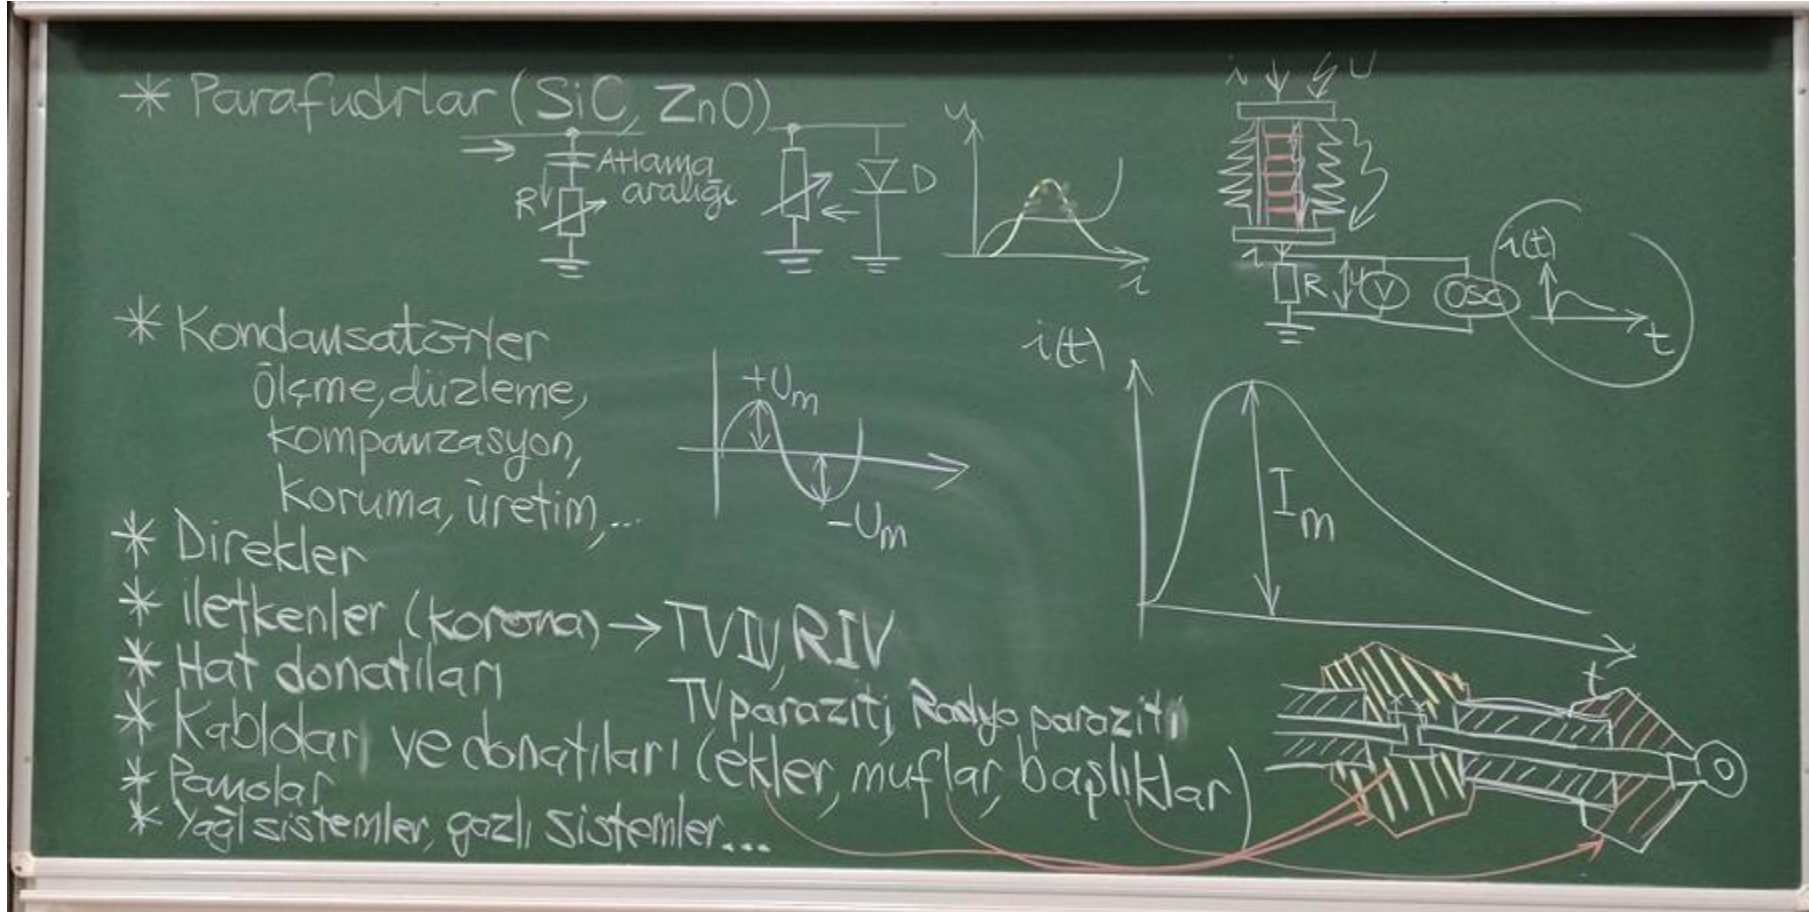 * Parafudrlar (SiC, ZnO)
Atlama
aralığı
R
D
u
i
i
U
i
R
U
V
OSC
i(t)
t
* Kondansatörler
Ölçme, düzleme,
kompanzasyon,
koruma, üretim,...
+Um
-Um
i(t)
Im
t
* Direkler
* iletkenler (korona) → TVIV, RIV
TV paraziti, Radyo paraziti
* Hat donatıları
* Kablolar ve donatıları (ekler, muflar, başlıklar)
* Panolar
* Yağlı sistemler, gazlı sistemler...